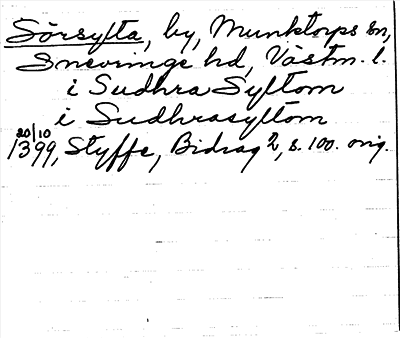 Sörsylta, by, Munktorps sn,
Snevringe hd, Västm. l.
i Sudhra Syltom
i Sudhrasyltom
20/10
1399, Styffe, Bidrag 2, s. 100. orig.